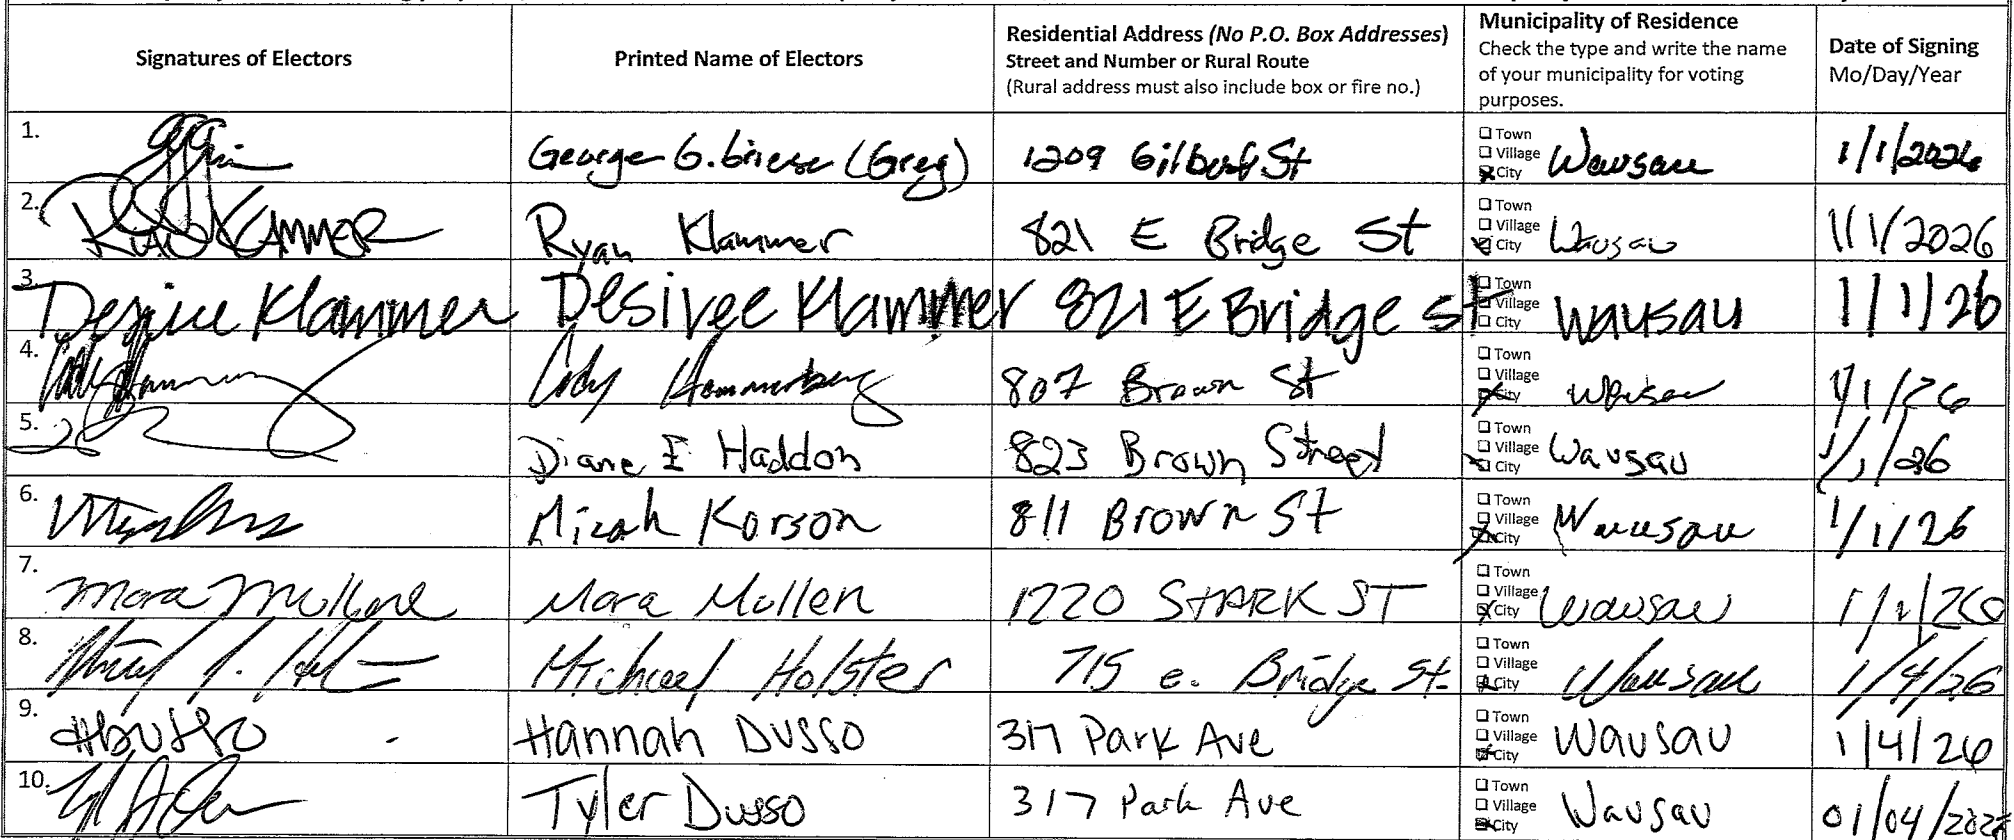 Signatures of Electors
Printed Name of Electors
Residential Address (No P.O. Box Addresses)
Street and Number or Rural Route
(Rural address must also include box or fire no.)
Municipality of Residence
Check the type and write the name
of your municipality for voting
purposes.
Date of Signing
Mo/Day/Year
1. George G. Griese (Greg) 1209 Gilbert St Town Village City Wausau 1/1/2026
2. Ryan Klammer Ryan Klammer 821 E Bridge St Town Village City Wausau 1/1/2026
3. Desiree Klammer Desiree Klammer 821 E Bridge St Town Village City Wausau 1/1/26
4. Cody Hammerberg 807 Brown St Town Village City Wausau 1/1/26
5. Diane E Haddon 823 Brown Street Town Village City Wausau 1/1/26
6. Micah Korson 811 Brown St Town Village City Wausau 1/1/26
7. Mara Mullen Mara Mullen 1220 STARK ST Town Village City Wausau 1/1/26
8. Michael Holster 715 e. Bridge St. Town Village City Wausau 1/4/26
9. HDusso Hannah Dusso 317 Park Ave Town Village City Wausau 1/4/26
10. Tyler Dusso 317 Park Ave Town Village City Wausau 01/04/202